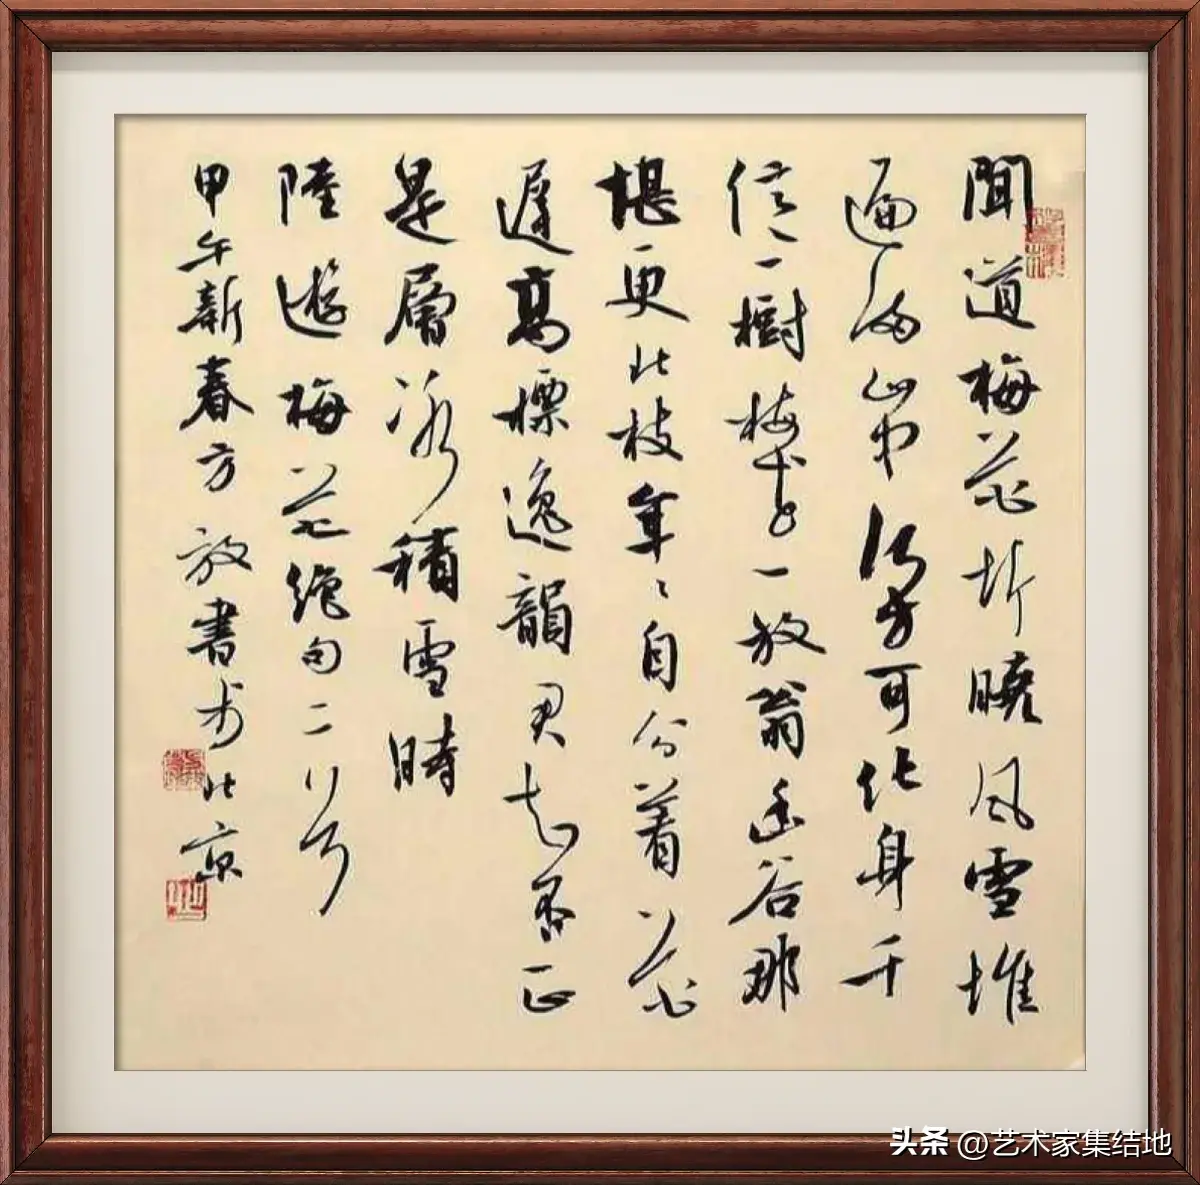 聞道梅花坼曉風雪堆
遍滿山中何方可化身千
億一樹梅前一放翁幽谷那
堪更北枝年々自分着花
遲高標逸韻君知否正
是層冰積雪時
陸遊梅花絕句二首
甲午新春方放書於北京
头条 @艺术家集结地